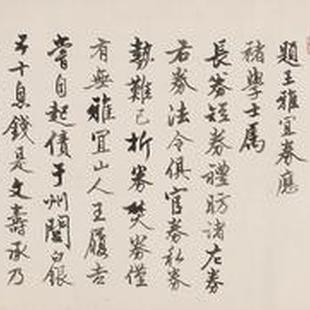 題王雅宜券應
禇學士屬
長券短券禮昉諸左券
右券法令俱官券私券
執難已折券焚券僅
有無雅宜山人王履吉
嘗自起債于州閶白銀
五十息錢是文壽承乃